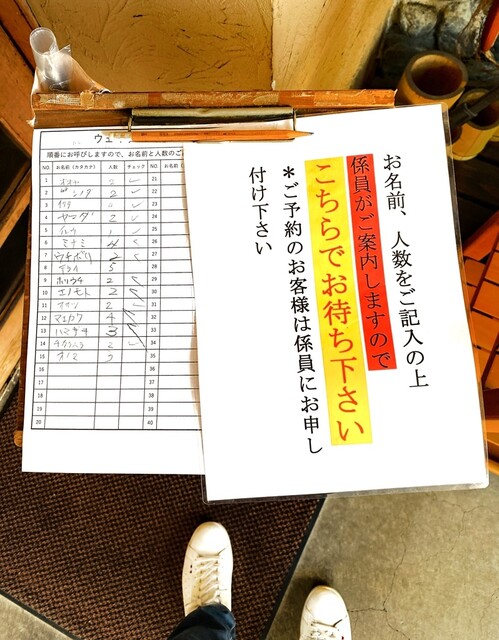 ウェ
順番にお呼びしますので、お名前と人数のご
NO. お名前（カタカナ） 人数 チェック NO. お名前
1 2 21
2 2 22
3 23
4 2 24
5 1 25
6 ミナミ 4 26
7 ウチボリ 2 27
8 5 28
9 ホリウチ 2 29
10 エノモト 2 30
11 2 31
12 マエカワ 4 32
13 ハマサキ 3 33
14 2 34
15 オノマ 35
16 36
17 37
18 38
19 39
20 40
お名前、人数をご記入の上
係員がご案内しますので
こちらでお待ち下さい
＊ご予約のお客様は係員にお申し
付け下さい